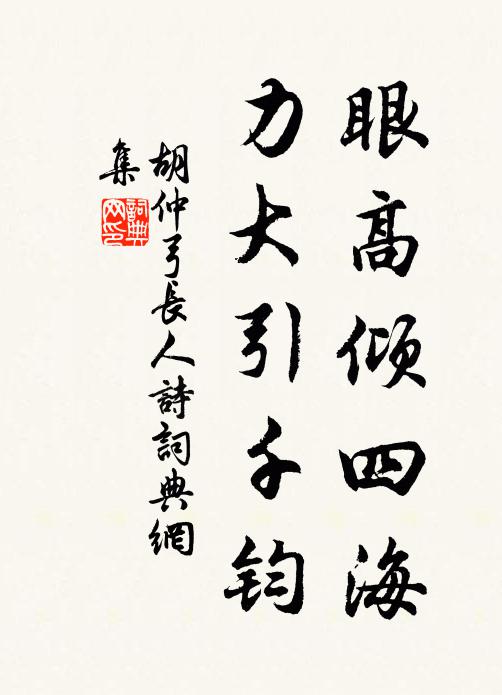 眼高倾四海
力大引千钧
胡仲弓長人詩詞典網
集
詞典網印